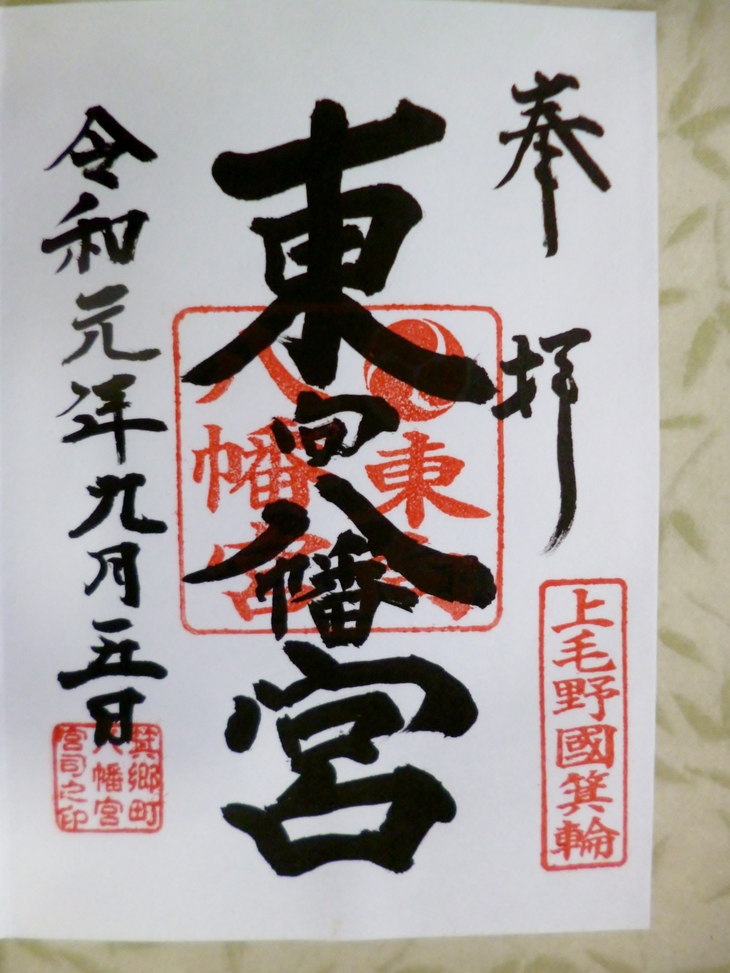 奉拝
上毛野國箕輪
東向八幡宮
東向
八幡宮
令和元年九月五日
箕郷町
八幡宮
宮司之印